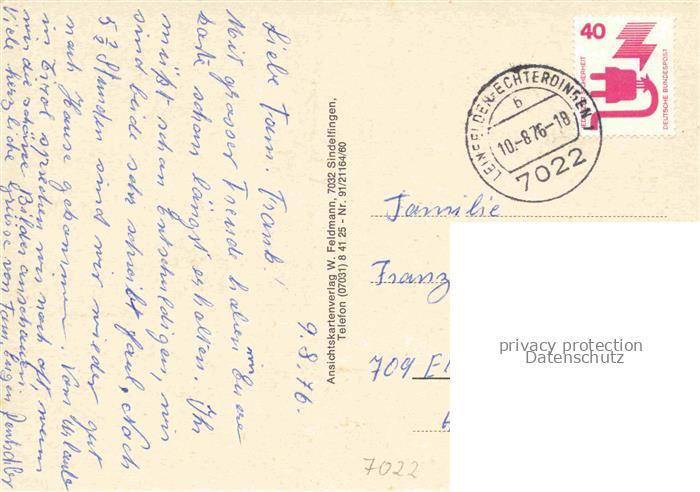 9.8.76.
Liebe Fam. Frank!
Mit grosser Freude haben wir Eu ere
Karte schon längst erhalten. Ihr
müßt schon Entschuldigen, wir
sind beide sehr schreibt faul, Nach
5 ½ Stunden sind wir wieder gut
nach Hause gekommen. Vom Urlaub
in Tirol sprechen wir noch oft, wenn
wir die schöne Bilder anschauen.
Viele herzliche Grüsse von Fam. Eugen
Ansichtskartenverlag W. Feldmann, 7032 Sindelfingen,
Telefon (07031) 8 41 25 - Nr. 91/21164/60
40
DEUTSCHE BUNDESPOST
LEINFELDEN-ECHTERDINGEN 1
b
10.-8.76-18
7022
Familie
Franz
709 El
privacy protection
Datenschutz
7022